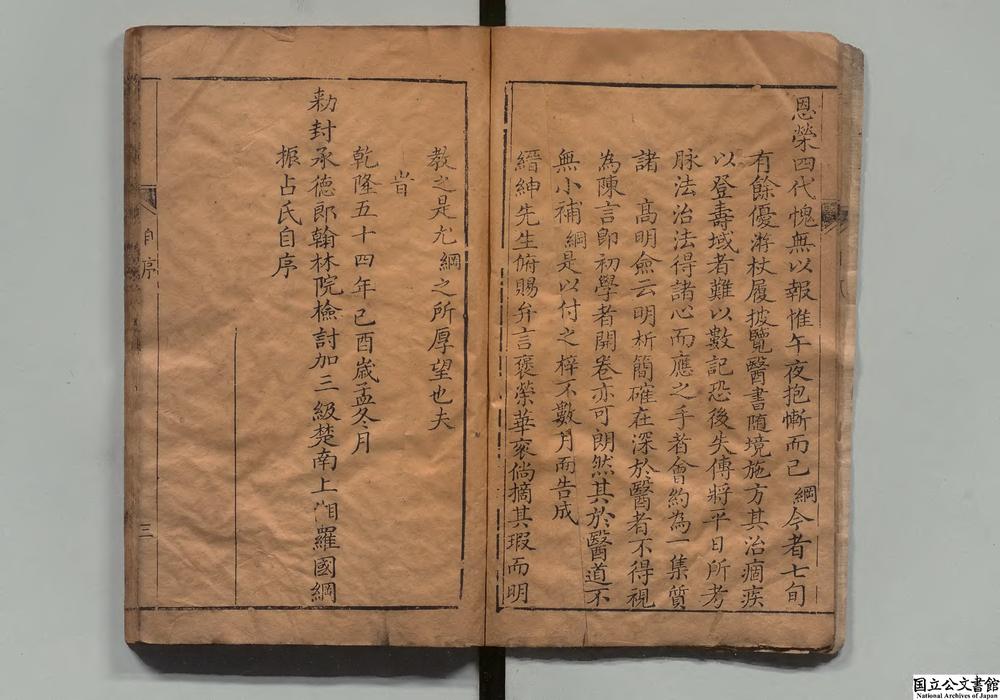 恩榮四代愧無以報惟午夜抱慚而已綱今者七旬
有餘優游杖履披覽醫書隨境施方其治痼疾
以登壽域者難以數記恐後失傳將平日所考
脉法治法得諸心而應之手者會約為一集質
諸高明僉云明析簡確在深於醫者不得視
為陳言即初學者開卷亦可朗然其於醫道不
無小補綱是以付之梓不數月而告成
縉紳先生俯賜弁言褒榮華衮倘摘其瑕而明
教之是尤綱之所厚望也夫
旹
乾隆五十四年己酉歲孟冬月
勅封承德郎翰林院檢討加三級楚南上湘羅國綱
振占氏自序
自序
三
国立公文書館
National Archives of Japan